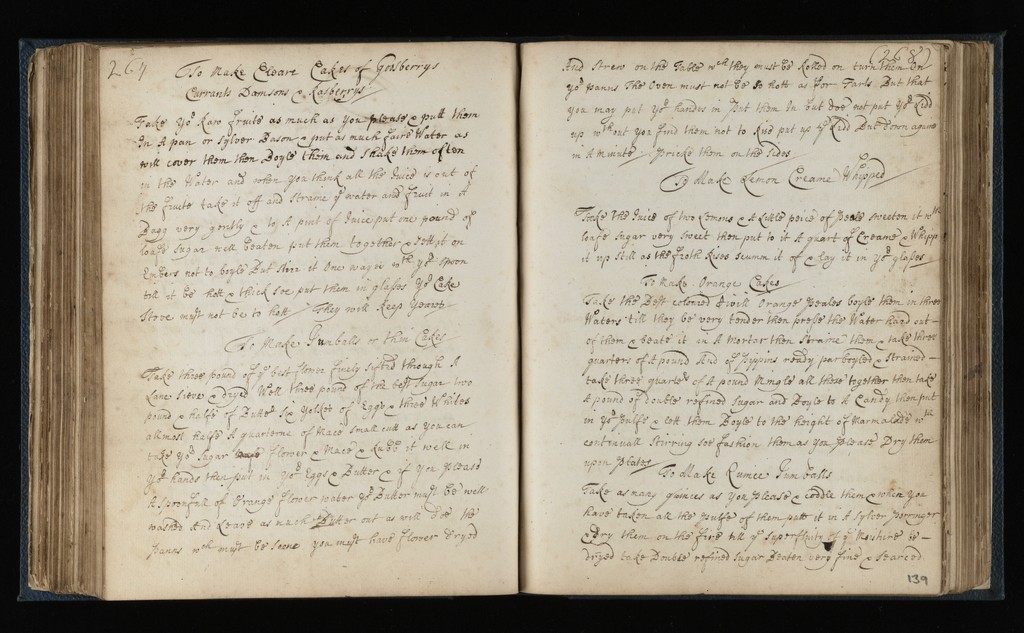 264
To Make Cleare Cakes of Gosberrys
Currants Damsons & Rasberrys
Take ye Raw fruite as much as You please & pull them
In A pan or sylver Bason & put as much faire Water as
will cover them then Boyle them and Shake them often
in the Water and when You think all the Juice is out of
the fruite take it off and Straine ye water and fruit in A
Bagg very gently & to A pint of Juice put one pound of
loafe Sugar well beaten put them together & sett it on
Embers not to boyle But stirr it One way wth ye spoon
till it be hott & thick soe put them in glasses ye Cake
Stove must not be to hott They will keep Yeares
To Make Jumballs or thin Cakes
Take three pound of ye best flower finely sifted through A
Lane Sieve & dryed Well three pound of the best Sugar two
pound & halfe of Butter six Yolkes of Eggs & three Whites
allmost halfe A quarterne of Mace Small cutt as you can
take ye Sugar flower & Mace & Rubb it well in
Yor hands then put in Yor Eggs & Butter & if You please
A spoonfull of Orange flower water ye Butter must be well
washed And leave as much Butter out as will doe the
Panns wch must be seene you must have flower dryed
(265)
And Strew on the Table wch they must be Rolled on turn them on
ye panns The Oven must not be So hott as for Tarts But that
you may put yor handes in Put them In but doe not put ye Lidd
up wthout you find them not to Rise put up ye Lidd But down againe
in A Minute Pricke them on the Sides
To Make Lemon Creame Whipped
Take the Juice of two Lemons & A little peice of Peele sweeten it wth
loafe Sugar very sweet then put to it A quart of Creame & Whipp
it up still as the froth Rises scumm it of & lay it in ye glasses
To Make Orange Cakes
Take the Best colored Sivill Orange Peales boyle them in three
Waters till they be very tender then presse the Water hard out
of them & beate it in A Mortar then Straine them & take three
quarters of A pound And of Pippins ready parboyled & strained
take three quarters of A pound Mingle all these together then take
A pound of double refined Sugar and Boyle to A Candy then put
in Yor Pulpe & lett them Boyle to the height of Marmalade wth
continuall Stirring soe fashion them as You please Dry them
upon Plates
To Make Quince Jumballs
Take as many quinces as You please & coddle them & when you
have taken all the Pulpe of them putt it in A Sylver Porringer
& Dry them on the fire till ye superfluity of ye Moisture be
dryed take Double refined Sugar Beaten very fine & Searced
139